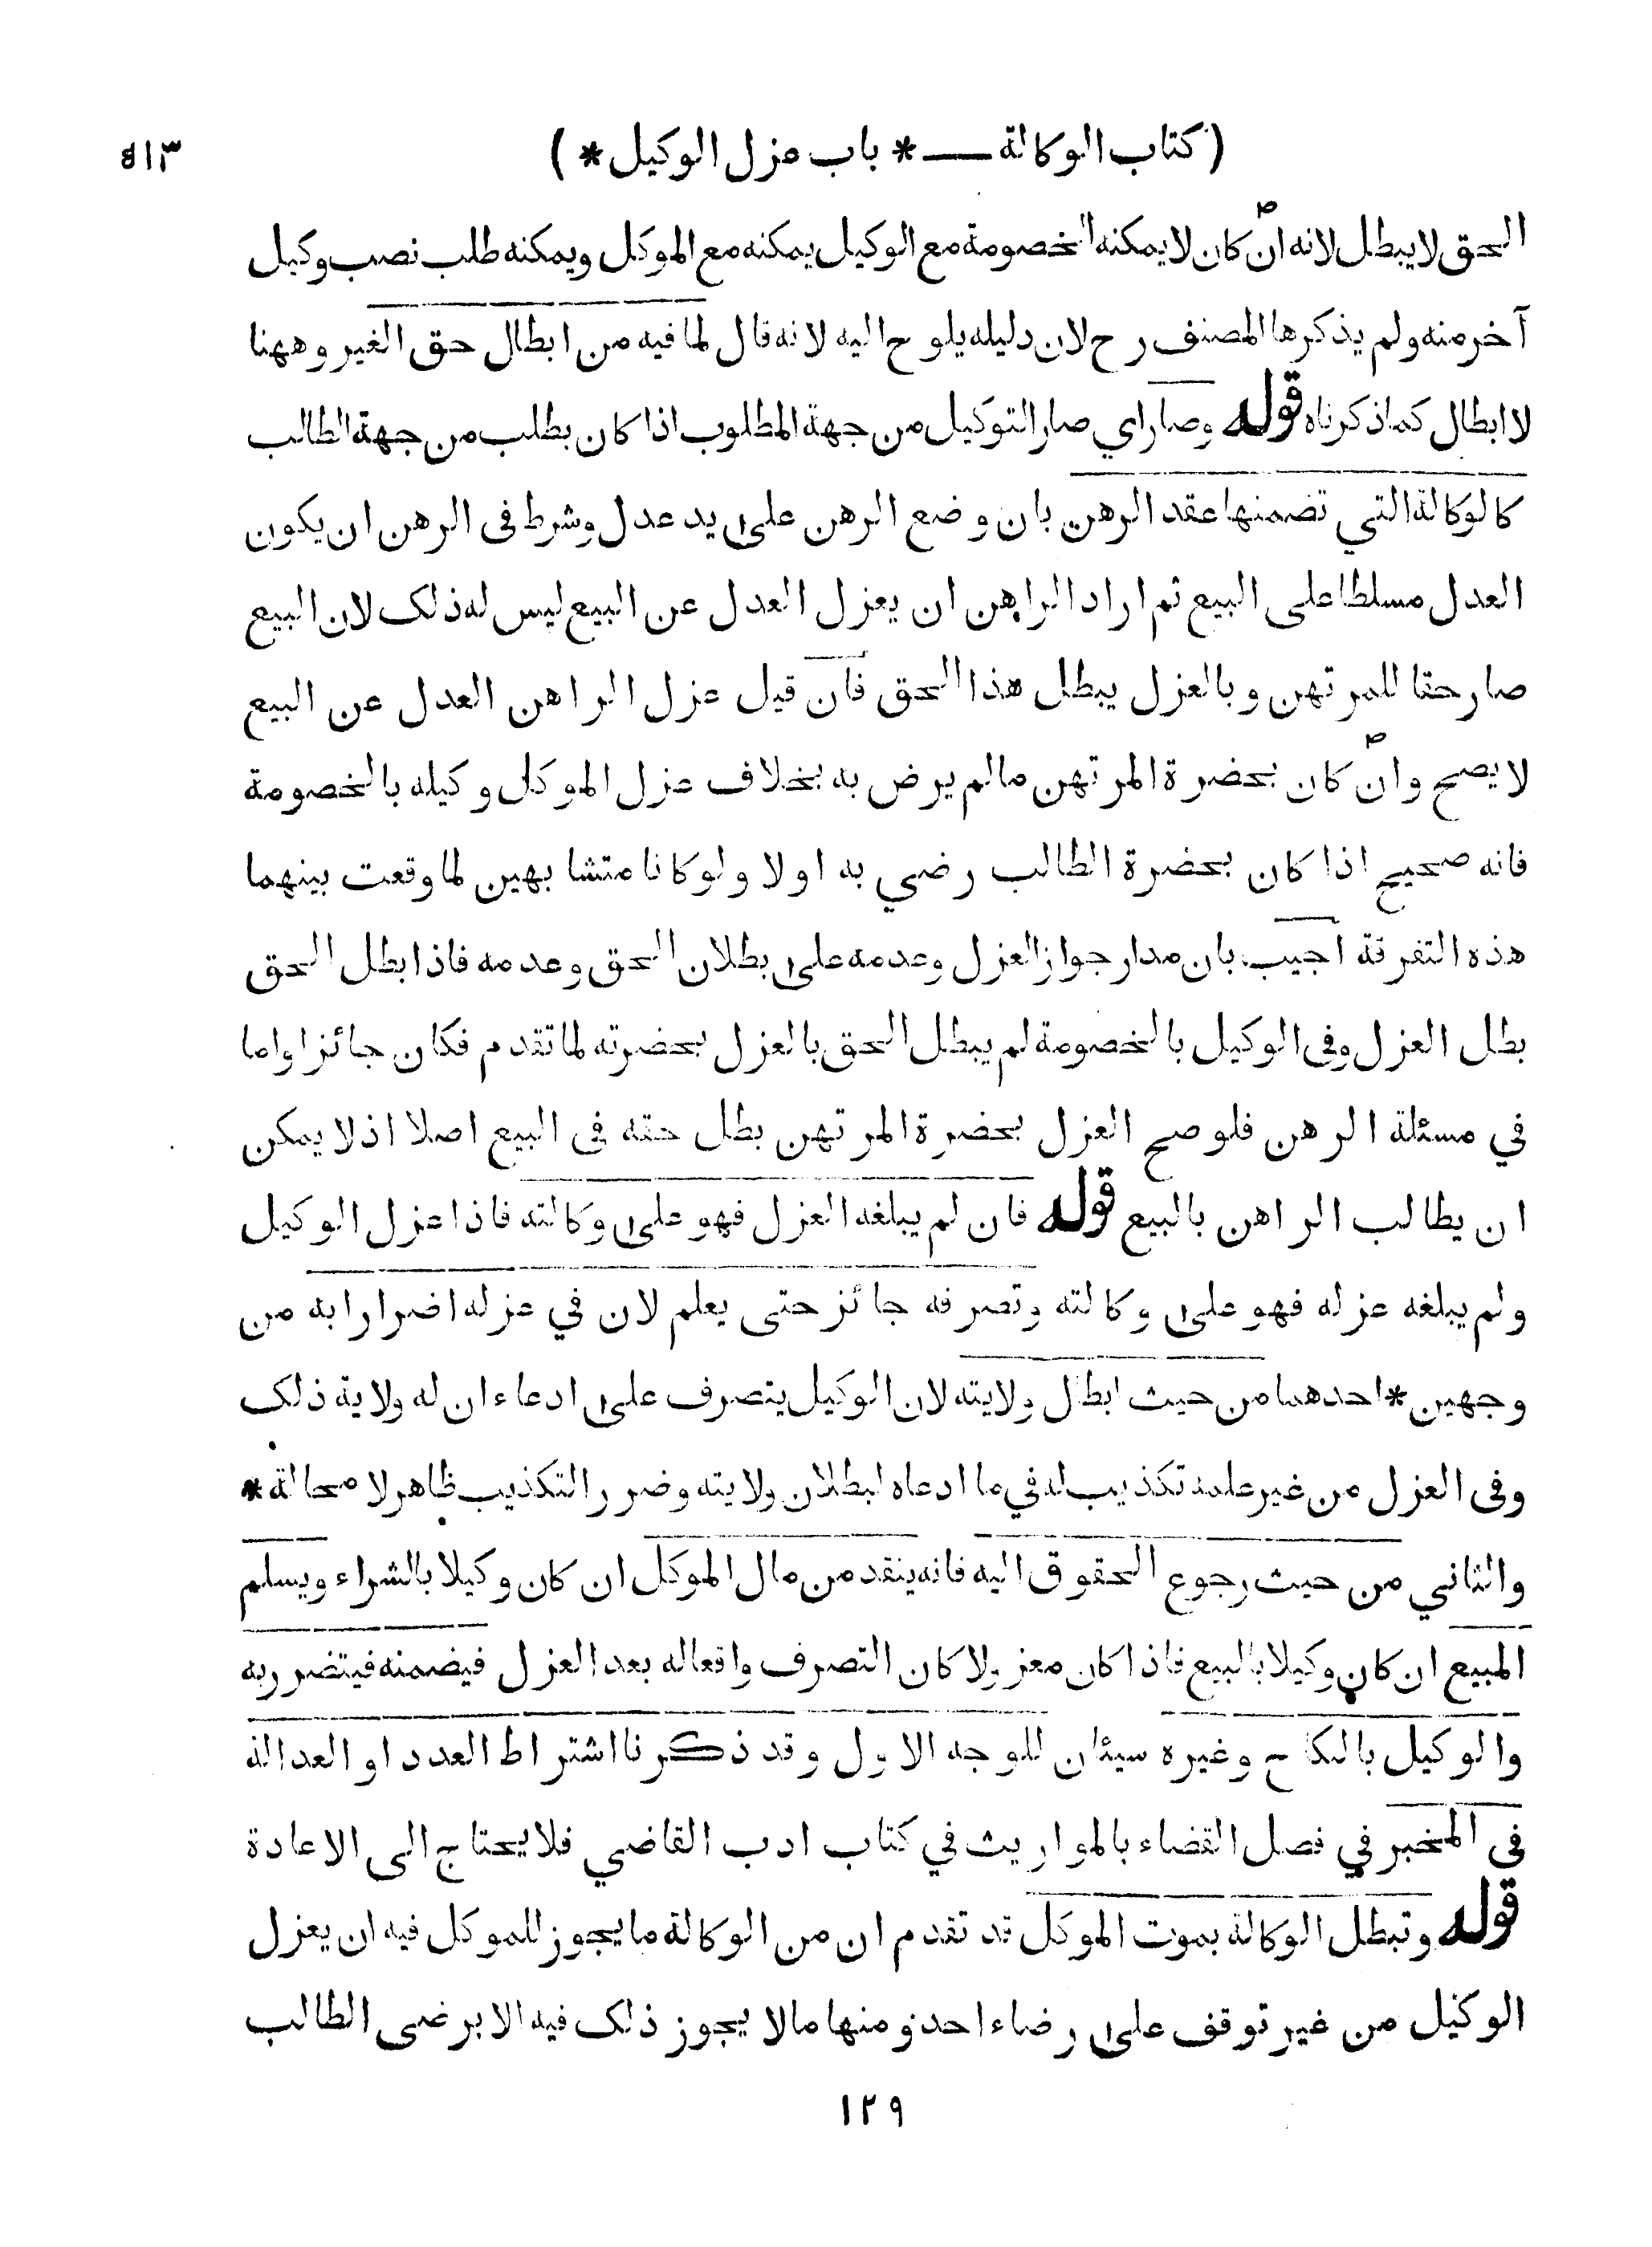 (كتاب الوكالة — * باب عزل الوكيل *)
٥١٣
الحق لا يبطل لانه ان كان لا يمكنه الخصومة مع الوكيل يمكنه مع الموكل ويمكنه طلب نصب وكيل
آخر منه ولم يذكرها المصنف رح لان دليله يلوح اليه لانه قال لما فيه من ابطال حق الغير وههنا
لا ابطال كما ذكرناه قوله وصار اي صار التوكيل من جهة المطلوب اذا كان بطلب من جهة الطالب
كالوكالة التي تضمنها عقد الرهن بان وضع الرهن على يد عدل وشرط فى الرهن ان يكون
العدل مسلطا على البيع ثم اراد الراهن ان يعزل العدل عن البيع ليس له ذلك لان البيع
صار حقا للمرتهن وبالعزل يبطل هذا الحق فان قيل عزل الراهن العدل عن البيع
لا يصح وان كان بحضرة المرتهن مالم يرض به بخلاف عزل الموكل وكيله بالخصومة
فانه صحيح اذا كان بحضرة الطالب رضي به اولا ولو كانا متشابهين لما وقعت بينهما
هذه التفرقة اجيب بان مدار جواز العزل وعدمه على بطلان الحق وعدمه فاذا بطل الحق
بطل العزل وفى الوكيل بالخصومة لم يبطل الحق بالعزل بحضرته لما تقدم فكان جائزا واما
في مسئلة الرهن فلو صح العزل بحضرة المرتهن بطل حقه فى البيع اصلا اذ لا يمكن
ان يطالب الراهن بالبيع قوله فان لم يبلغه العزل فهو على وكالته فاذا عزل الوكيل
ولم يبلغه عزله فهو على وكالته وتصرفه جائز حتى يعلم لان في عزله اضرارا به من
وجهين * احدهما من حيث ابطال ولايته لان الوكيل يتصرف على ادعاء ان له ولاية ذلك
وفى العزل من غير علمه تكذيب له في ما ادعاه لبطلان ولايته وضرر التكذيب ظاهر لا محالة *
والثاني من حيث رجوع الحقوق اليه فانه ينقد من مال الموكل ان كان وكيلا بالشراء ويسلم
المبيع ان كان وكيلا بالبيع فاذا كان معزولا كان التصرف وافعاله بعد العزل فيضمنه فيتضرر به
والوكيل بالنكاح وغيره سيئان للوجه الاول وقد ذكرنا اشتراط العدد او العدالة
فى المخبر في فصل القضاء بالمواريث في كتاب ادب القاضي فلا يحتاج الى الاعادة
قوله وتبطل الوكالة بموت الموكل قد تقدم ان من الوكالة ما يجوز للموكل فيه ان يعزل
الوكيل من غير توقف على رضاء احد ومنها مالا يجوز ذلك فيه الا برضى الطالب
١٢٩